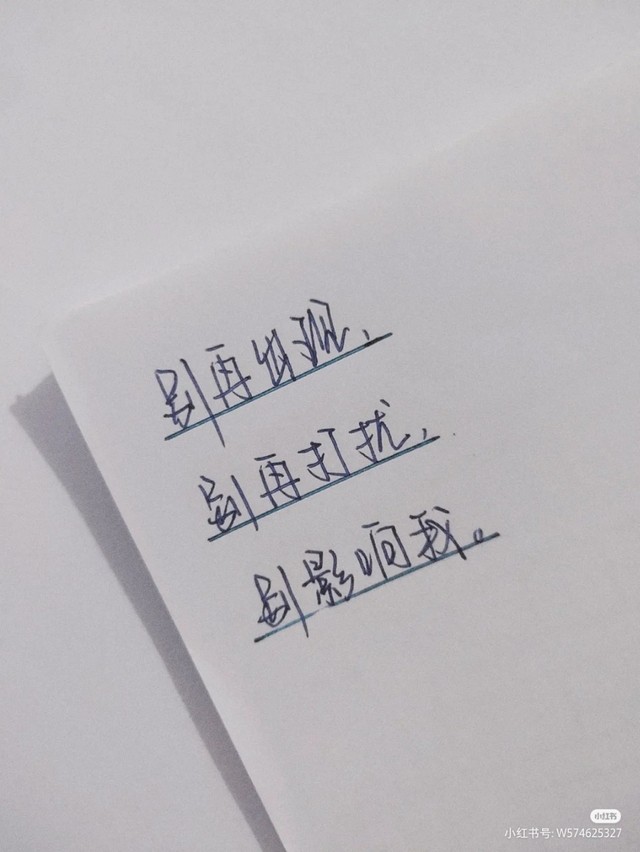 别再出现、
别再打扰，
别影响我。
小红书
小红书号: W574625327